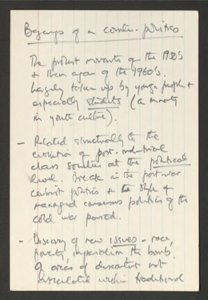 Beginnings of a counter-politics
The protest movements of the 1950's
& then again of the 1960's.
Largely taken up by young people &
especially students (a minority
in youth culture).
- Related structurally to the
evolution of post-industrial
class societies at the political
level. Break in the post war
cabinet politics & the style of
managed consensus politics of the
cold war period.
- Discovery of new issues – race,
poverty, imperialism the bomb.
Of areas of dissent not
articulated within traditional